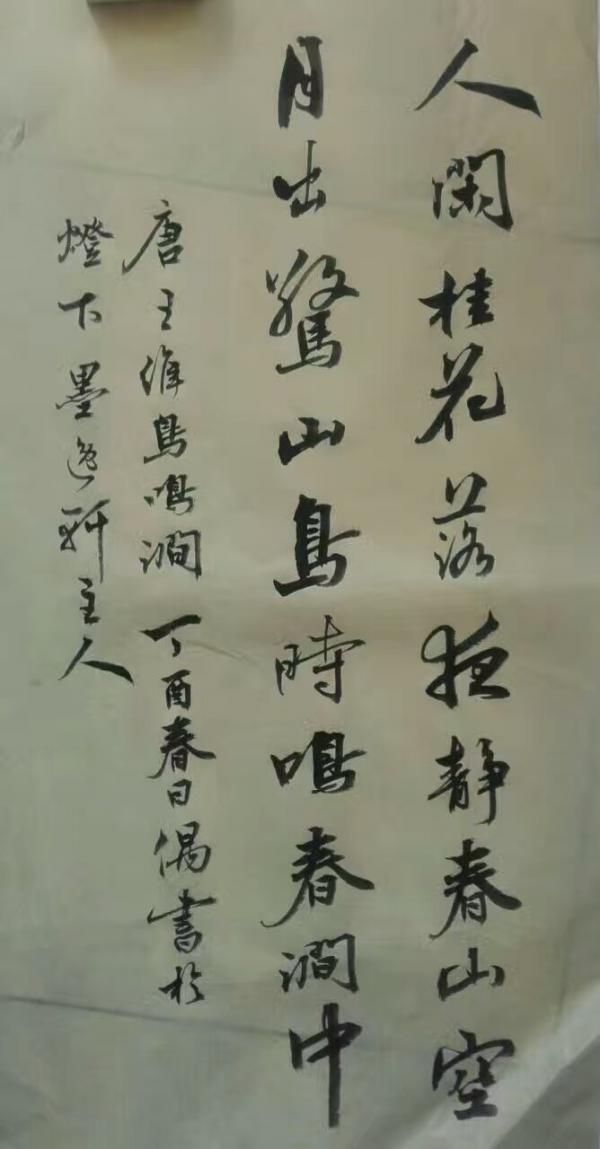 人閑桂花落夜静春山空
月出驚山鳥時鳴春澗中
唐王維鳥鳴澗丁酉春日偶書於
燈下墨逸軒主人